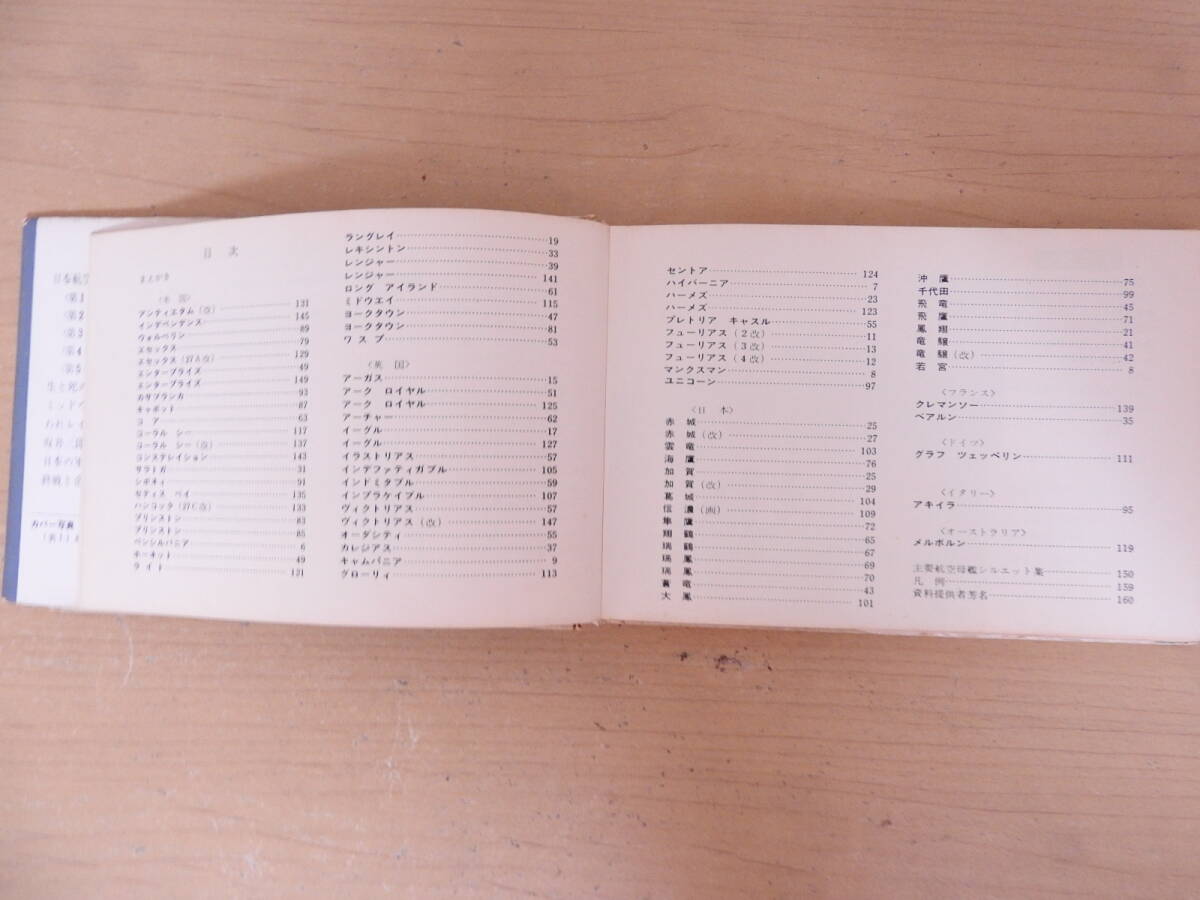 目 次
まえがき
〈米 国〉
アンティエタム (改) 131
インデペンデンス 145
ウォルベリン 89
エセックス 79
エセックス (27A改) 129
エンタープライズ 49
エンタープライズ 149
カサブランカ 93
キャボット 87
コ ア 63
コーラル シー 117
コーラル シー (改) 137
コンステレイション 143
サラトガ 31
シボネィ 91
セティス ベイ 135
ハンコック (27C改) 133
プリンストン 83
プリンストン 85
ペンシルバニア 6
ホーネット 49
ライト 131
ラングレイ 19
レキシントン 33
レンジャー 39
レンジャー 141
ロング アイランド 61
ミドウエイ 115
ヨークタウン 47
ヨークタウン 81
ワスプ 53
〈英 国〉
アーガス 15
アーク ロイヤル 51
アーク ロイヤル 125
アーチャー 62
イーグル 17
イーグル 127
イラストリアス 57
インデファティガブル 105
インドミタブル 59
インプラケイブル 107
ヴィクトリアス 57
ヴィクトリアス (改) 147
オーダシティ 55
カレジアス 37
キャムパニア 9
グローリィ 113
セントア 124
ハイバーニア 7
ハーメズ 23
ハーメズ 123
プレトリア キャスル 55
フューリアス (2改) 11
フューリアス (3改) 13
フューリアス (4改) 12
マンクスマン 8
ユニコーン 97
〈日 本〉
赤 城 25
赤 城 (改) 27
雲 竜 103
海 鷹 76
加 賀 25
加 賀 (改) 29
葛 城 104
信 濃 (画) 109
隼 鷹 72
翔 鶴 65
瑞 鶴 67
瑞 鳳 69
瑞 鳳 70
蒼 竜 43
大 鳳 101
沖 鷹 75
千代田 99
飛 竜 45
飛 鷹 71
鳳 翔 21
竜 驤 41
竜 驤 (改) 42
若 宮 8
〈フランス〉
クレマンソー 139
ベアルン 35
〈ドイツ〉
グラフ ツェッペリン 111
〈イタリー〉
アキイラ 95
〈オーストラリア〉
メルボルン 119
主要航空母艦シルエット集 150
凡 例 159
資料提供者芳名 160
日本航空
〈第1
〈第2
〈第3
〈第4
〈第5
生と死の
ミッドウ
われレイ
坂井三郎
日本の軍
終戦と
カバー写真
(表1)